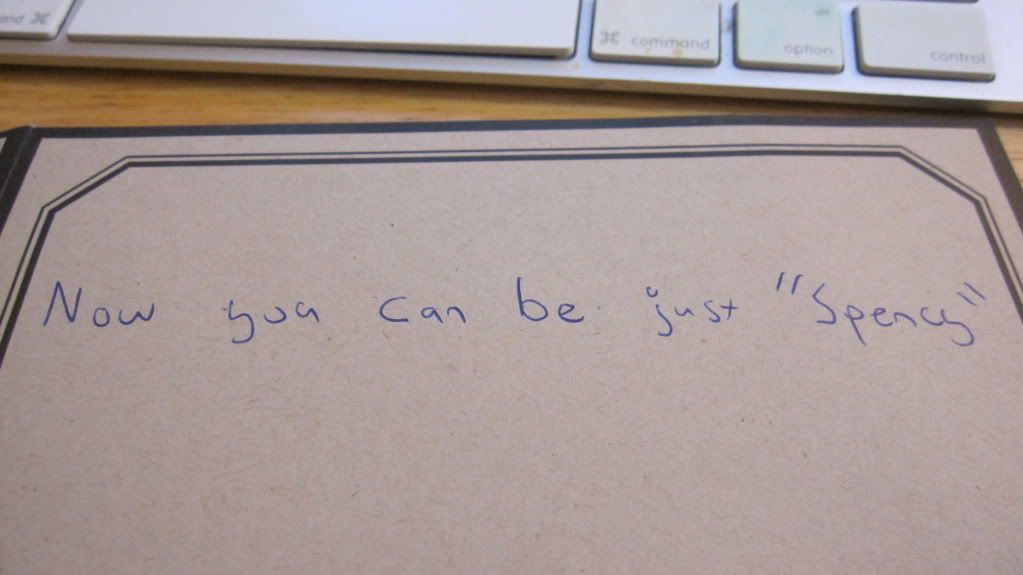 and ⌘
⌘ command
alt
option
control
Now you can be just "Spency"